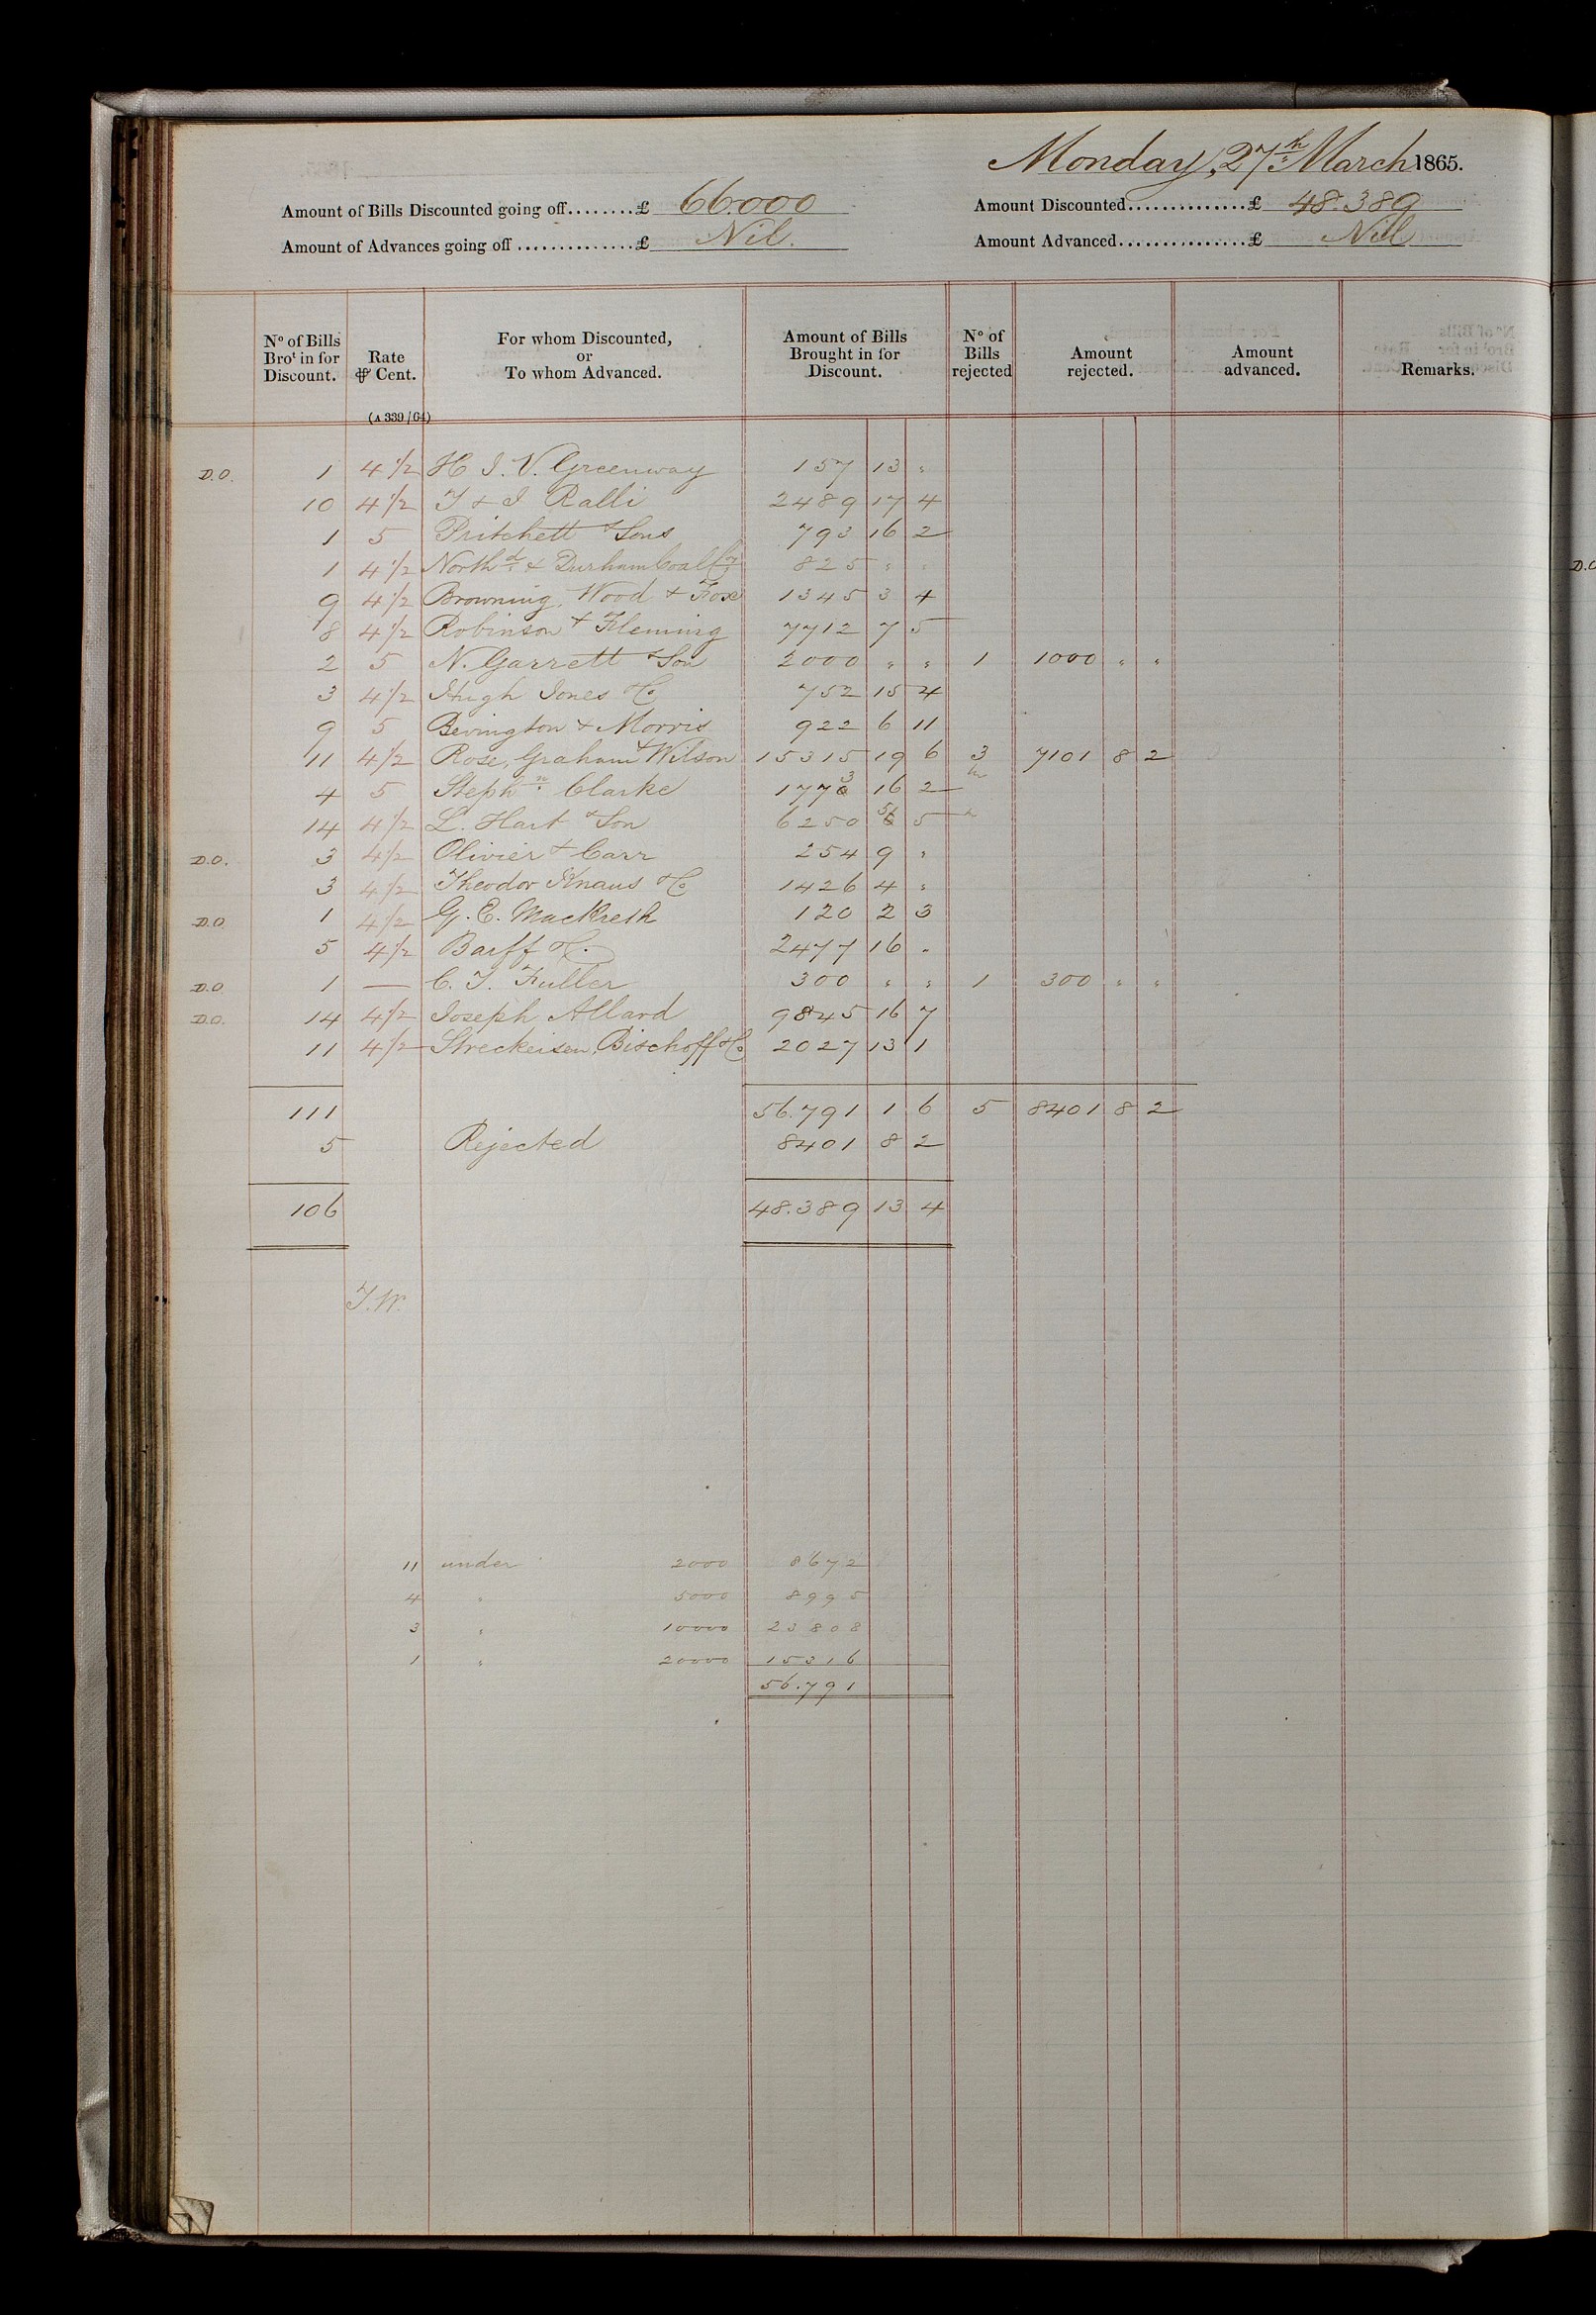 Monday, 27th March 1865.
Amount of Bills Discounted going off........£ 66.000 Amount Discounted..............£ 48.389
Amount of Advances going off..............£ Nil. Amount Advanced...............£ Nil
No of Bills Brot in for Discount. Rate ⅌ Cent. For whom Discounted, or To whom Advanced. Amount of Bills Brought in for Discount. No of Bills rejected Amount rejected. Amount advanced. Remarks.
(A 339/64)
D.O. 1 4 1/2 H J. V. Greenway 157 13 "
10 4 1/2 T & J Ralli 2489 17 4
1 5 Pritchett & Sons 793 16 2
1 4 1/2 Northd & Durham Coal Cy 825 " "
9 4 1/2 Browning, Wood & Fox 1345 3 4
8 4 1/2 Robinson & Fleming 7712 7 5
2 5 N. Garrett & Son 2000 " " 1 1000 " "
3 4 1/2 Hugh Jones & Co 752 15 4
9 5 Bevington & Morris 922 6 11
11 4 1/2 Rose, Graham & Wilson 15315 19 6 3 7101 8 2
4 5 Stephn Clarke 1773 16 2
14 4 1/2 L. Hart & Son 6250 5 5
D.O. 3 4 1/2 Olivier & Carr 254 9 "
3 4 1/2 Theodor Knaus & Co 1426 4 "
D.O. 1 4 1/2 G. E. MacKreth 120 2 3
5 4 1/2 Barff & Co 2477 16 "
D.O. 1 — C. T. Fuller 300 " " 1 300 " "
D.O. 14 4 1/2 Joseph Allard 9845 16 7
11 4 1/2 Streckeisen, Bischoff & Co 2027 13 1
111 56.791 1 6 5 8401 8 2
5 Rejected 8401 8 2
106 48.389 13 4
T.W.
11 under 2000 8672
4 " 5000 8995
3 " 10000 23808
1 " 20000 15316
56.791
D.O